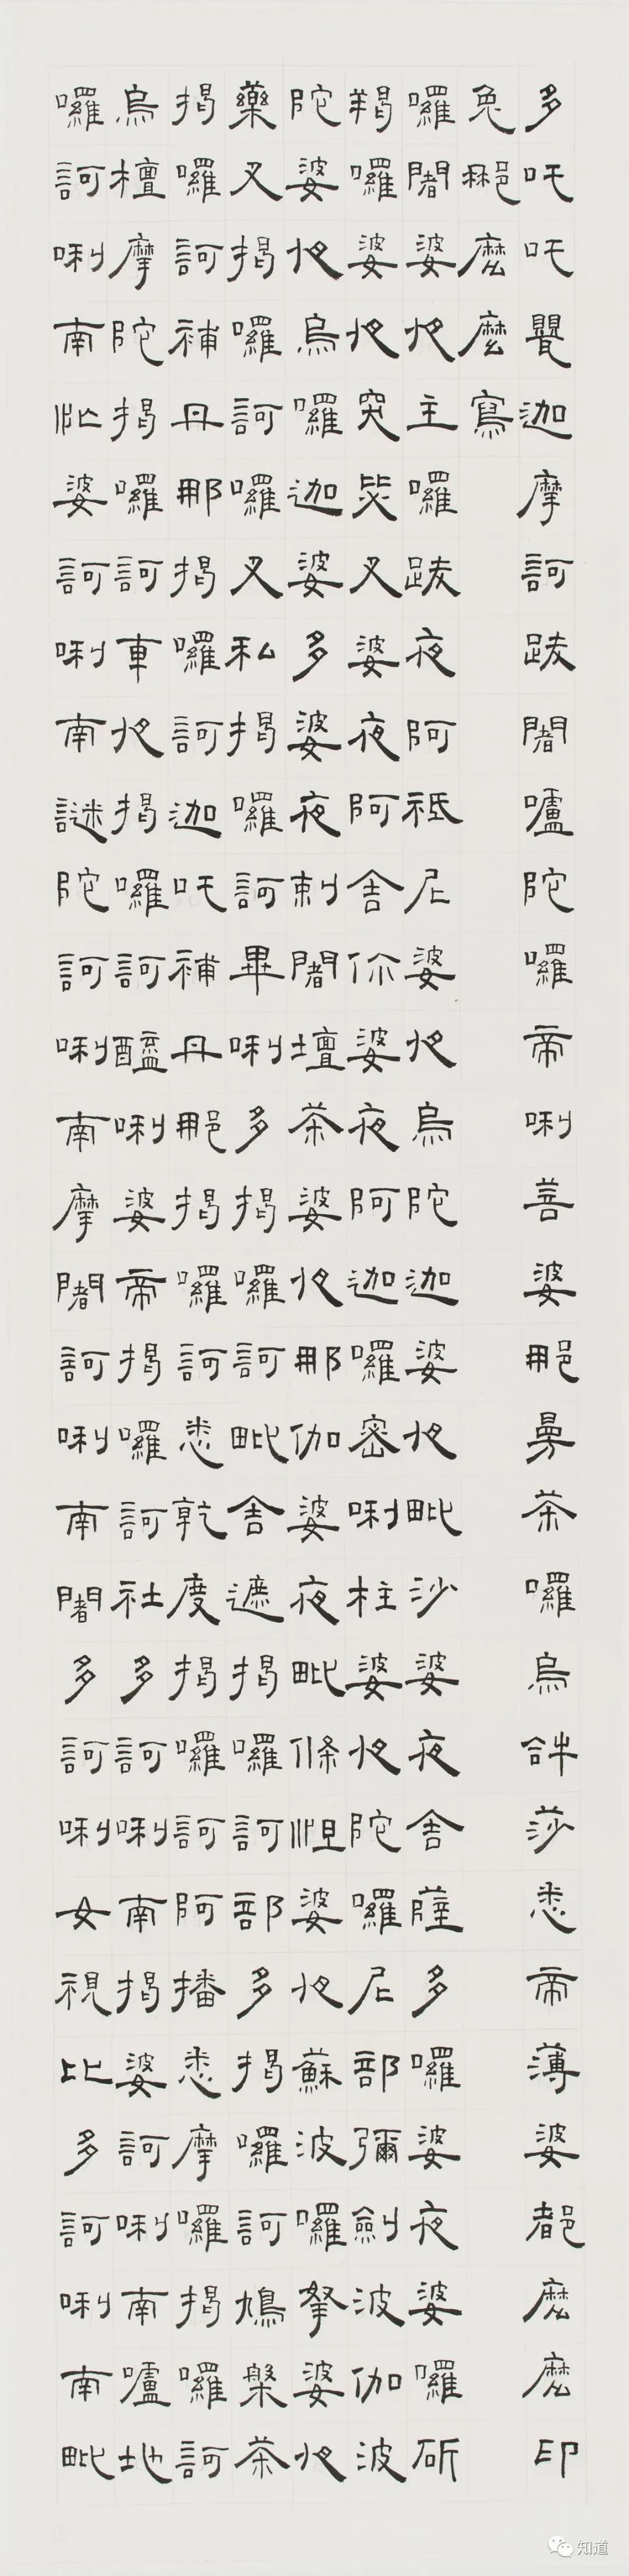 多吒吒甖迦摩訶跋闍嚧陀囉帝唎菩婆那曼茶囉烏𤙖莎悉帝薄婆都麽麽印
兔那麽麽寫
囉闍婆夜主囉跋夜阿祇尼婆夜烏陀迦婆夜毗沙婆夜舍薩多囉婆夜婆囉斫
羯囉婆夜突毖叉婆夜阿舍你婆夜阿迦囉密唎柱婆夜陀囉尼部彌劍波伽波
陀婆夜烏囉迦婆多婆夜剌闍壇茶婆夜那伽婆夜毗條怛婆夜蘇波囉拏婆夜
藥叉揭囉訶囉叉私揭囉訶畢唎多揭囉訶毗舍遮揭囉訶部多揭囉訶鳩槃茶
揭囉訶補丹那揭囉訶迦吒補丹那揭囉訶悉乾度揭囉訶阿播悉摩囉揭囉訶
烏檀摩陀揭囉訶車夜揭囉訶醯唎婆帝揭囉訶社多訶唎南揭婆訶唎南嚧地
囉訶唎南忙婆訶唎南謎陀訶唎南摩闍訶唎南闍多訶唎南視比多訶唎南毗
知道